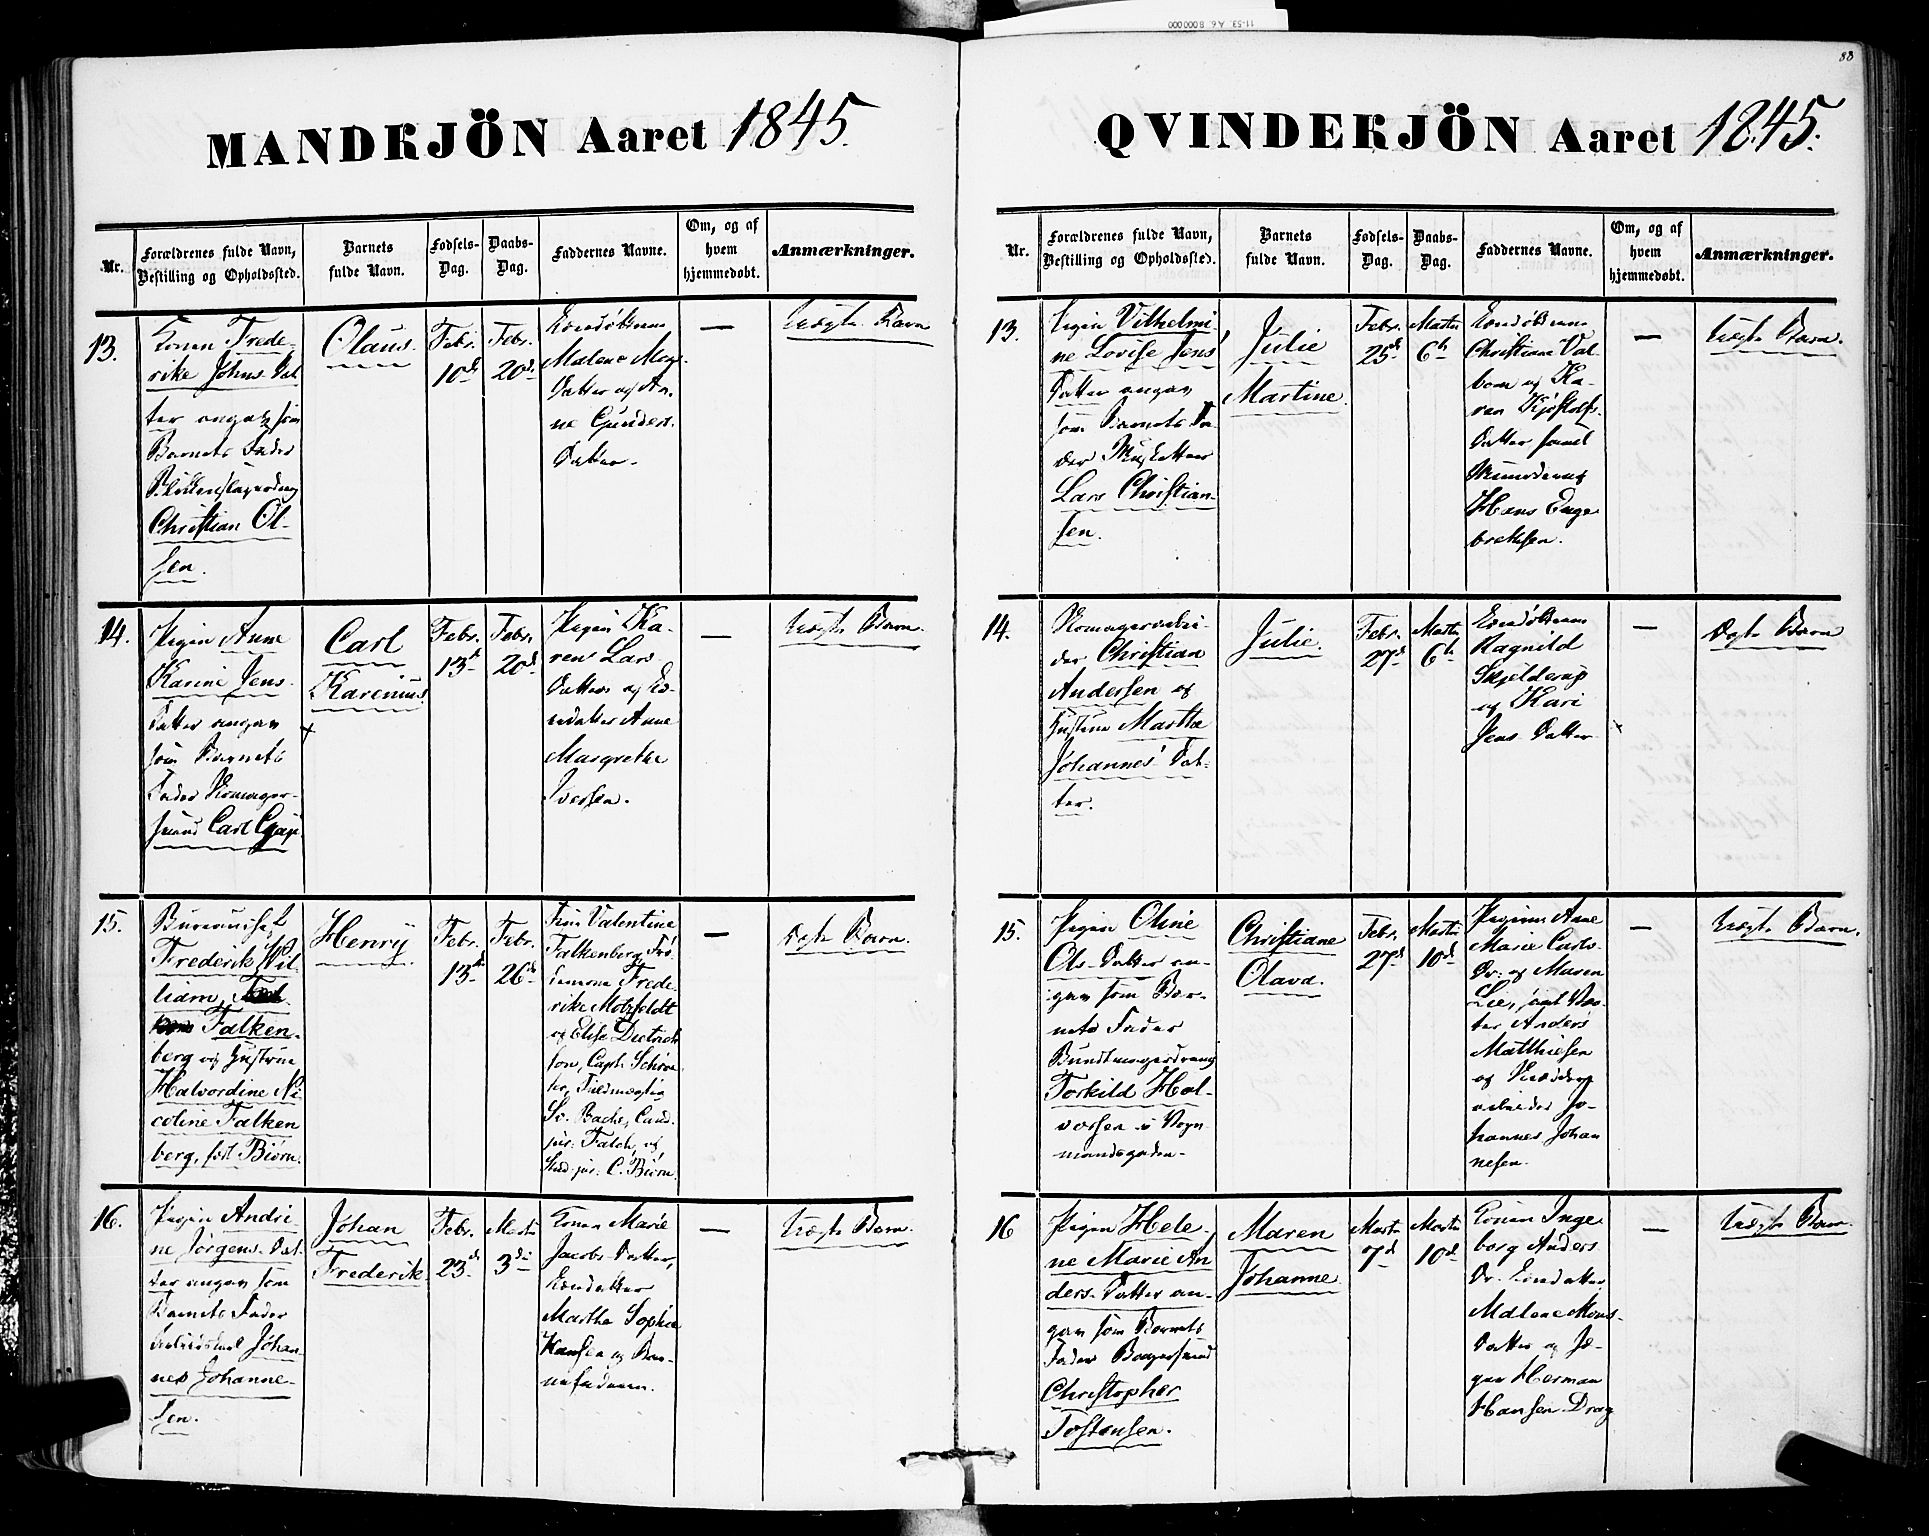 11-53. A6. 8000000
88
MANDKJÖN Aaret 1845.
Nr.
Forældrenes fulde Navn,
Bestilling og Opholdssted.
Barnets
fulde Navn.
Fødsels-
Dag.
Daabs-
Dag.
Faddernes Navne.
Om, og af
hvem
hjemmedøbt.
Anmærkninger.
13.
Konen Frede-
rike Johns Dat
ter angav som
Barnets Fader
Christian Ol-
sen.
Olaus.
Febr.
10de
Febr.
20de
Malene Mag
Datter og An-
ne Gunders
Datter.
—
Uægte Barn
14.
Pigen Anne
Karine Jens
Datter angav
som Barnets
Fader
svend Carl Gjap
Carl
Karenius
Febr.
13de
Febr.
20de
Pigen Ka-
ren Lars
Datter og
Anne
Margrethe
Iversen.
—
Uægte Barn.
15.
Frederik Wil-
liam
Falken-
berg og Hustrue
Halvordine Ni
coline Falken
berg, født Biørn.
Henry
Febr.
13de
Febr.
26de
Fru Valentine
Falkenberg, Frø-
Frede-
rike Motzfeldt
og Elise Dietrich
son, Capt. Schrø-
ter,
Sv. Bachs, Cand.
jur. Falch, og
Stud. jur. C. Biørn.
—
Ægte Barn.
16.
Pigen Andri-
ne Jørgens-Dat-
ter angav som
Barnets Fader
Johan-
nes Johanne-
sen.
Johan
Frederik
Febr.
23de
Marts
3die
Konen Marie
Jacobs-Datter,
Martha Sophie
Hansen og Bar-
nefaderen.
—
Uægte Barn.
QVINDEKJÖN Aaret 1845.
Nr.
Forældrenes fulde Navn,
Bestilling og Opholdssted.
Barnets
fulde Navn.
Fødsels-
Dag.
Daabs-
Dag.
Faddernes Navne.
Om, og af
hvem
hjemmedøbt.
Anmærkninger.
13.
Pigen Vilhelmi-
ne Lovise Jens'
Datter angav
som Barnets Fa-
der Musketeer
Lars Christian-
sen.
Julie
Martine.
Febr.
25de
Marts
6te
Christiane Val-
bom og Ka-
ren Kjøstolfs
Datter samt
Hans Enge
bretsen.
—
Uægte Barn.
14.
der Christian
Andersen og
Hustrue Marthe
Johannes' Dat-
ter.
Julie.
Febr.
27de
Marts
6te
Ragnild
Skjelderup
og Kari
Jens-Datter
Ægte Barn
15.
Pigen Oline
Ols-Datter an-
gav som Bar-
nets Fader
Bundtmagerdreng
Torkild Hal-
vorsen i Vogn-
mandsgaden.
Christiane
Olava.
Febr.
27de
Marts
10de
Pigerne Anne
Marie Carls-
Dr. og Maren
Lie, samt
Anders
Matthiesen
og
arbeider Jo-
hannes Johan
nesen.
—
Uægte Barn.
16
Pigen Hele-
ne Marie An
ders-Datter an-
gav som Barnets
Fader Bagersvend
Christopher
Tostensen.
Maren
Johanne
Marts
7de
Marts
10de
Konen Inge
borg Anders
Dr.
Malene Mons-
Datter og Jæ-
ger Herman
Hansen Drog
—
Uægte Barn.